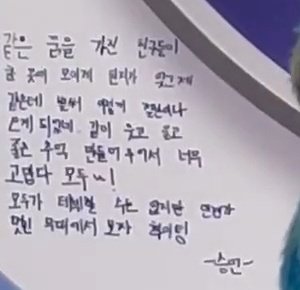 같은 꿈을 가진 친구들이
한 곳에 모이게 된지가 엊그제
같은데 벌써 이렇게
쓰게 되었네. 같이 웃고 울고
좋은 추억 만들어 주어서 너무
고맙다 모두 ㅠㅠ!
모두가 데뷔할 수는 없지만 언젠가
멋진 무대에서 보자 화이팅
-승언-